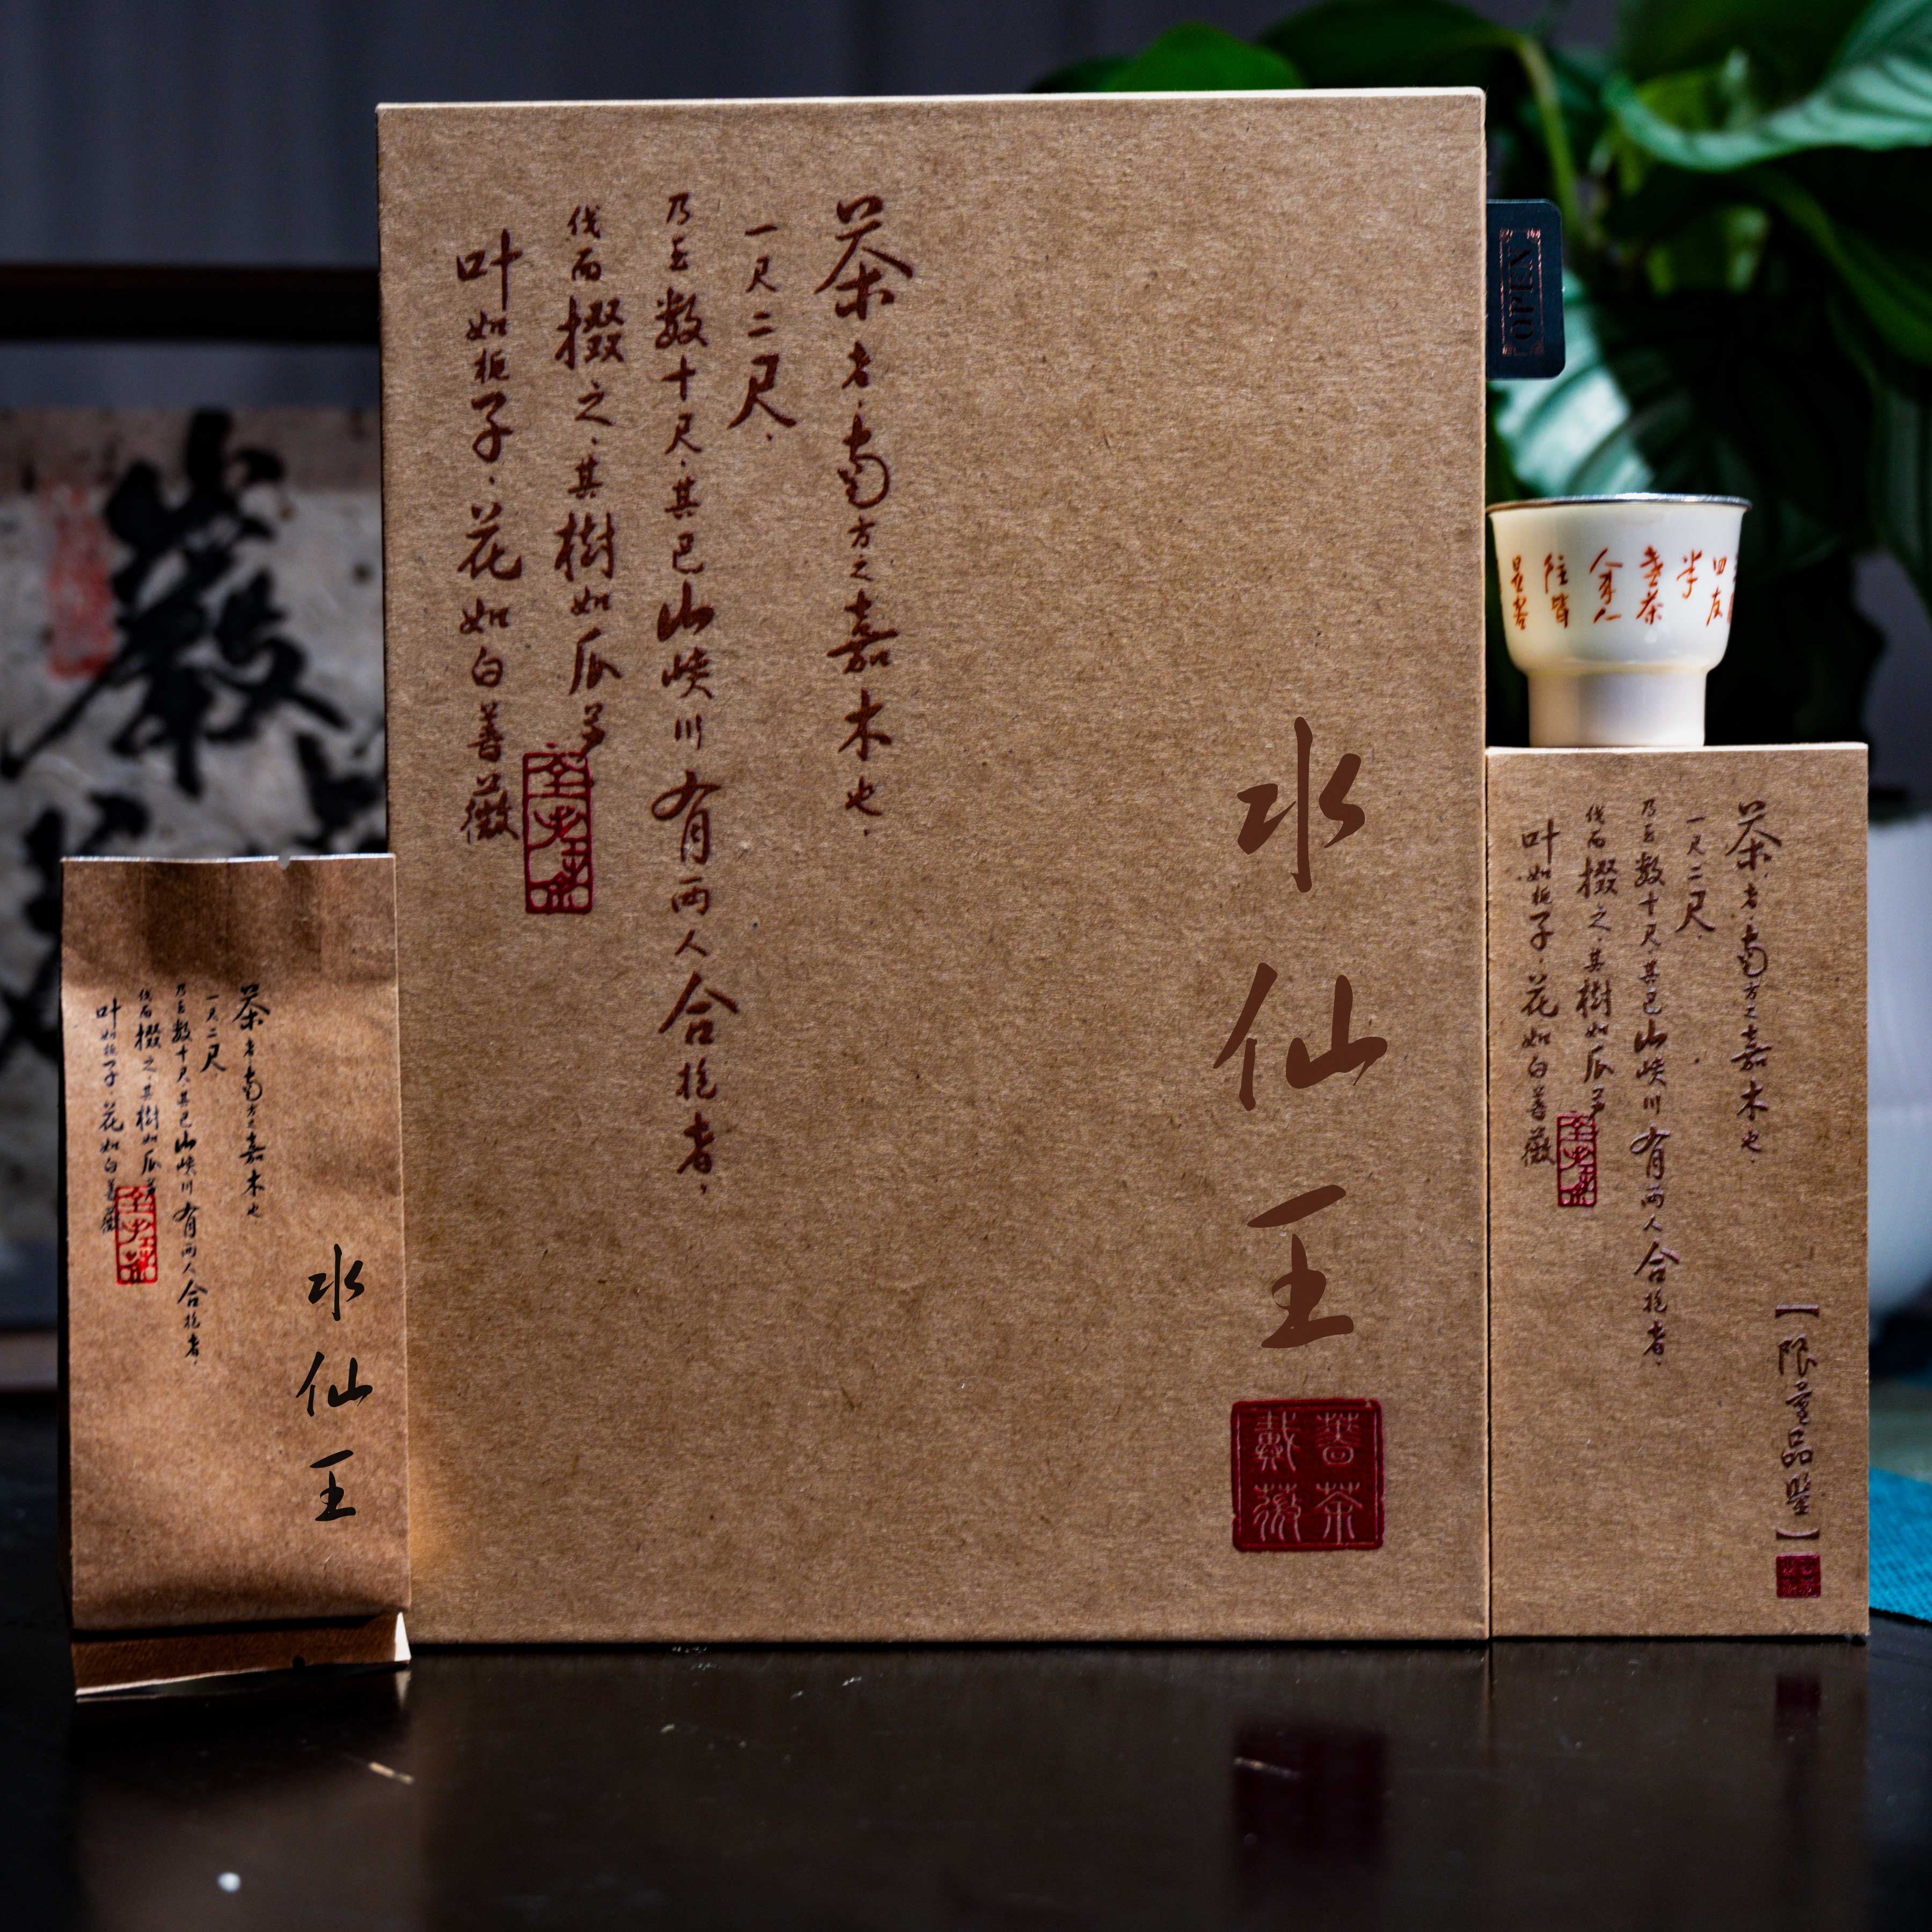 茶者,南方之嘉木也,
一尺二尺,
乃至数十尺,其巴山峡川有两人合抱者,
伐而掇之,其樹如瓜芦
叶如栀子,花如白蔷薇
水仙王
蔷茶
戴薇
OPEN
茶者,南方之嘉木也
一尺二尺,
乃至数十尺,其巴山峡川有两人合抱者,
伐而掇之,其樹如瓜芦
叶如栀子,花如白蔷薇
水仙王
茶者,南方之嘉木也,
一尺二尺,
乃至数十尺,其巴山峡川有两人合抱者,
伐而掇之,其樹如瓜芦
叶如栀子,花如白蔷薇
【限量品鉴】